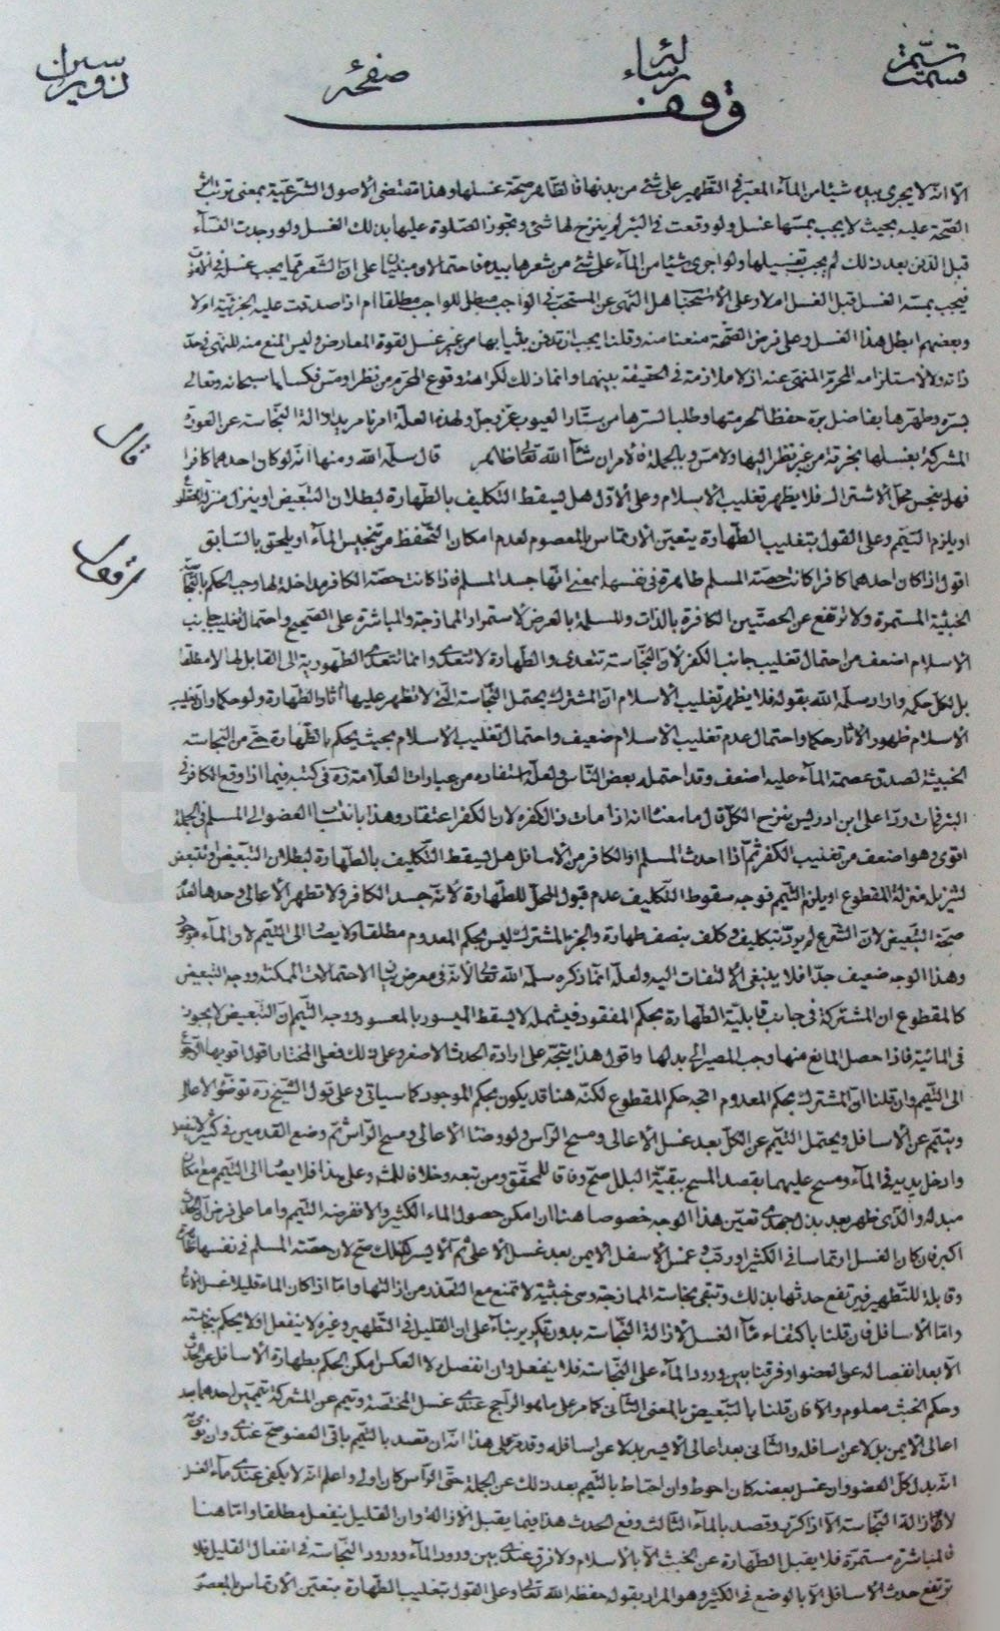 تتمّة قسمت
رسائله
صفحه
وقف
الّا انّه لا يجرى بيده شيئا من المآء المعبّر فى التّطهير على شئ من بدنها فالظاهر صحّة غسلها وهذا مقتضى الاصول الشّرعيّة بمعنى ترتّب
الصّحّة عليه بحيث لا يجب بمسّها غسل ولو وقعت فى البئر لم ينزح لها شئ وتجوز الصّلوة عليها بذلك الغسل ولو وجدت النّسآء
قبل الدّفن بعد ذلك لم يجب تغسيلها ولو اجرى شيئا من المآء على شئ من شعرها بيده فاحتمالان مبنيان على انّ الشّعر يجب غسل
فيجب بمسّه الغسل قبل الغسل ام لا وعلى الاستحباب هل النّهى عن المستحبّ فى الواجب مبطل للواجب مطلقا ام اذا صدقت عليه الجزئيّة او لا
وبعضهم ابطل هذا الغسل وعلى فرض الصّحّة منعنا منه وقلنا يجب ان تدفن بثيابها من غير غسل لقوة المعارض وليس المنع منه للنهى فى حدّ
ذاته ولا لاستلزامه المحرّم المنهى عنه اذ لا ملازمة فى الحقيقة بينهما وانما ذلك لكراهة وقوع المحرّم من نظر او مسّ فكساها سبحانه وتعالى
بستره وطهّرها بفاضل برّه حفظا لحرمتها وطلبا لسترها من ستّار العيوب عزّ وجلّ ولهذه العلّة امرنا بازالة النّجاسة عن العورة
المشركة بغسلها بخرقة من غير نظر اليها ولا مسّ وبالجملة فالامر ان شآء الله تعالى ظاهر قال سلّمه الله ومنها انّه لو كان احدهما كافرا
فهل ينجس محلّ الاشتراك فلا يظهر تغليب الاسلام وعلى الاوّل هل يسقط التّكليف بالطّهارة لبطلان التّبعيض او ينزل منزلة المقطوع
او يلزم التّيمّم وعلى القول بتغليب الطّهارة يتعيّن الارتماس بالمعصوم لعدم امكان التّحفّظ من تنجيس المآء او يلحق بالسّابق
اقول اذا كان احدهما كافرا كانت حصّة المسلم طاهرة فى نفسها بمعنى انّها جسد المسلم فاذا كانت حصّة الكافر مداخلة لها وجب الحكم بالنّجاسة
الخبثيّة المستمرة ولا ترتفع عن الحصّتين الكافرة بالذّات والمسلمة بالعرض لاستمرار الممازجة والمباشرة على الصّحيح واحتمال تغليب جانب
الاسلام اضعف من احتمال تغليب جانب الكفر لانّ النّجاسة تتعدى والطّهارة لا تتعدى وانما تتعدى الطّهورية الى القابل لها لا مطلقا
بل لكلّ حكمه واراد سلّمه الله بقوله فلا يظهر تغليب الاسلام انّ المشترك يحتمل النّجاسة الّتى لا تظهر عليها آثار الطّهارة ولو حكما وان تغليب
الاسلام ظهور الاثار حكما واحتمال عدم تغليب الاسلام ضعيف واحتمال تغليب الاسلام بحيث يحكم بالطّهارة حتى من النّجاسة
الخبيثة لصدق عصمة المآء عليه اضعف وقد احتمله بعض النّاس ولعلّه استفاده من عبارات العلّامة ره فى كتبه فيما اذا وقع الكافر فى
البئر فمات وردّا على ابن ادريس بنزح الكلّ قال ما معناه انه اذا مات زال كفره لانّ الكفر اعتقاد وهذا بانتساب العضو الى المسلم فى الجملة
اقوى وهو اضعف من تغليب الكفر ثم اذا احدث المسلم او الكافر من الاسافل هل يسقط التّكليف بالطّهارة لبطلان التّبعيض او تتبعض
لتنزيله منزلة المقطوع او يلزم التّيمّم فوجه سقوط التّكليف عدم قبول المحلّ للطّهارة لانّه جسد الكافر ولا تطهر الاعالى وحدها لعدم
صحّة التّبعيض لانّ الشّرع لم يرد بتكليف مكلف بنصف طهارة والجزء المشترك ليس بحكم المعدوم مطلقا ولا يصار الى التّيمّم لانّ المآء موجود
وهذا الوجه ضعيف جدّا فلا ينبغى الالتفات اليه ولعلّه انّما ذكره سلّمه الله تعالى لانّه فى معرض بيان الاحتمالات الممكنة ووجه التّبعيض
كالمقطوع ان المشتركة فى جانب قابليّة الطّهارة بحكم المفقود فيشمله لا يسقط الميسور بالمعسور ووجه التّيمّم انّ التّبعيض لا يجوز
فى المائيّة فاذا حصل المانع منها وجب المصير الى بدلها واقول هذا يتّجه على ارادة الحدث الاصغر وعلى ذلك فعلى المختار اقول اقويها الرّجوع
الى التّيمّم وان قلنا انّ المشترك بحكم المعدوم اتّجه حكم المقطوع لكنّه هنا قد يكون بحكم الموجود كما سياتى وعلى قول الشّيخ ره توضّؤ الاعالى
ويتيمّم عن الاسافل ويحتمل التّيمّم عن الكلّ بعد غسل الاعالى ومسح الرّأس ولو وضّئا الاعالى ومسح الرّأس ثم وضع القدمين فى كثير
وادخل يديه فى المآء ومسح عليهما بقصد المسح ببقيّة البلل صحّ وفاقا للمحقّق ومن تبعه وخلافا للمش وعلى هذا فلا يصار الى التّيمّم مع امكان
مبدله والّذى ظهر بعد بذل جهدى تعيّن هذا الوجه خصوصا هنا ان امكن حصول الماء الكثير والا ففرضه التّيمّم واما على فرض انّ الحدث
اكبر فان كان الغسل ارتماسا فى الكثير او رتّب وغسل الاسفل الايمن بعد غسل الاعلى ثم الايسر كذلك صحّ لان حصّة المسلم فى نفسها طاهرة
وقابلة للتّطهير فيرتفع حدثها بذلك وتبقى نجاسة الممازجة وهى خبثيّة لا تمنع مع التّعذر من ازالتها وامّا اذا كان الماء قليلا غسل الاعالى
وامّا الاسافل فان قلنا باكتفاء مآء الغسل لازالة النّجاسة بدون تكرير بناء على ان القليل فى التّطهير وغيره لا ينفعل او لا يحكم بنجاسته
الّا بعد انفصاله عن العضو او فرقنا بين ورود المآء على النّجاسة فلا ينفعل وان انفصل لا العكس امكن الحكم بطهارة الاسافل عن الحدث
وحكم الخبث معلوم والّا فان قلنا بالتّبعيض بالمعنى الثّانى كما مرّ على ما هو الرّاجح عندى غسل المختصّة وتيمّم عن المشتركة تيمّمين احدهما بعد
اعالى الايمن بدلا عن اسافله والثّانى بعد اعالى الايسر بدلا عن اسافله وقد مرّ على هذا انّه ان قصد بالتّيمّم باقى العضو صحّ عندى وان نوى
انّه بدل كلّ العضو وان غسل بعضه كان احوط وان احتاط بالتّيمّم بعد ذلك عن الجملة حتّى الرّأس كان اولى واعلم انّه لا يكفى عندى مآء الغسل
لازالة النّجاسة الّا اذا كرّره وقصد بالمآء الثّالث رفع الحدث هذا فيما يقبل الازالة وان القليل ينفعل مطلقا وامّا هنا
فالمباشرة مستمرّة فلا يقبل الطّهارة عن الخبث الّا بالاسلام ولا فرق عندى بين ورود المآء وورود النّجاسة فى انفعال القليل فلا
يرتفع حدث الاسافل الّا بالوضع فى الكثير وهو المراد بقوله حفظه الله تعالى وعلى القول بتغليب الطّهارة يتعيّن الارتماس بالمعصوم
قال
اقول